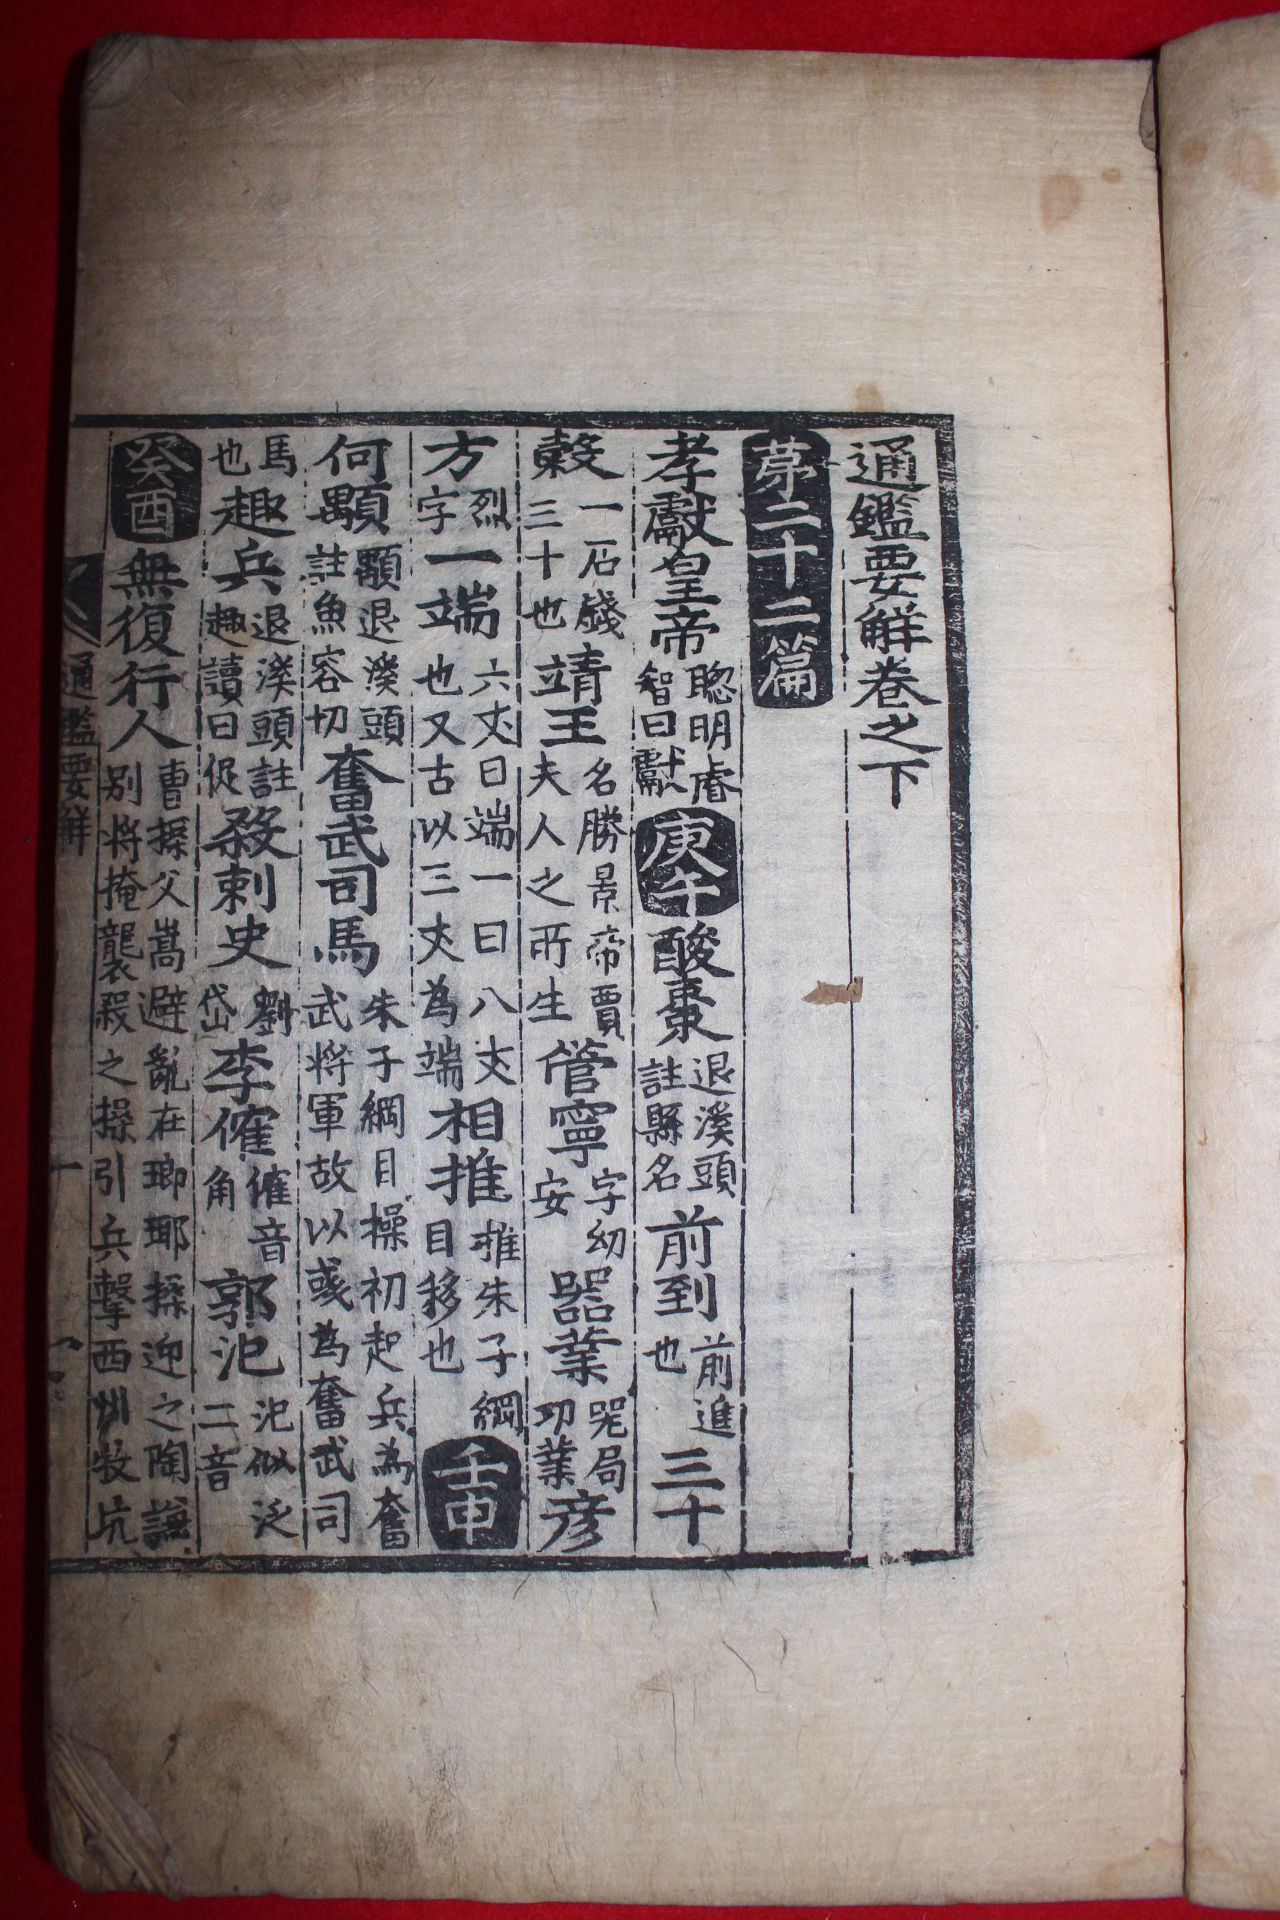 通鑑要觧卷之下
苐二十二篇
孝獻皇帝聦明睿智曰獻庚午酸棗退溪頭註縣名前到前進也三十
穀一石錢三十也靖王名勝景帝賈夫人之所生管寧字幼安器業噐局功業彦
方烈字一端六丈曰端一曰八丈也又古以三丈為端相推推朱子綱目移也壬申
何顒顒退溪頭註魚容切奮武司馬朱子綱目操初起兵為奮武將軍故以彧為奮武司
馬也趣兵退溪頭註趣讀曰促殺刺史劉岱李傕傕音角郭汜汜似泛二音
癸酉無復行人曹操父嵩避亂在瑯琊操迎之陶謙别将掩襲殺之操引兵擊西州牧坑
通鑑要觧 一